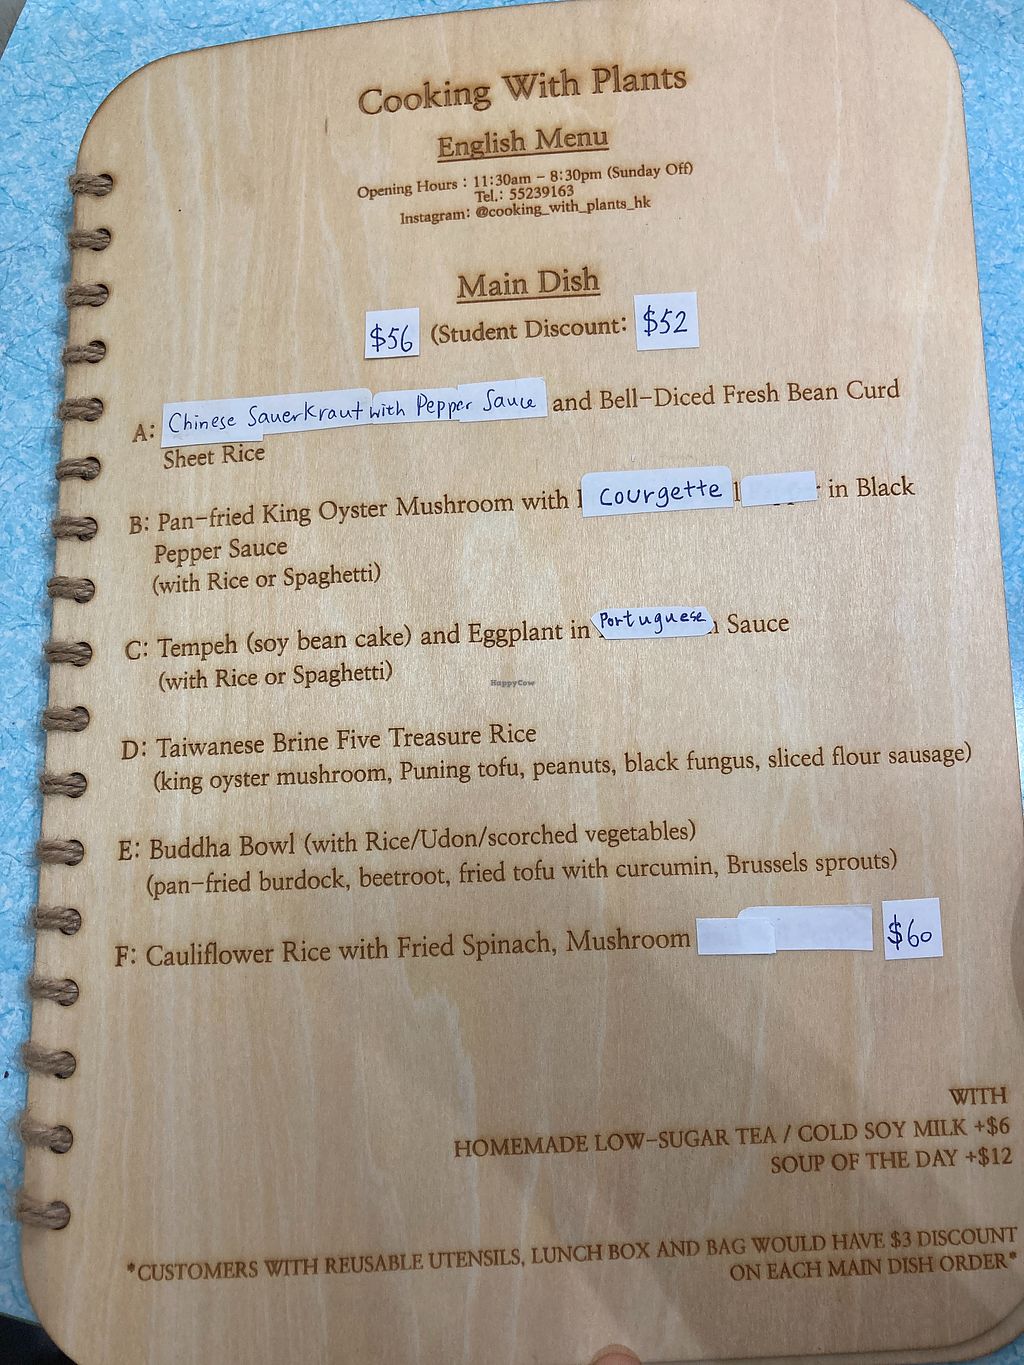 Cooking With Plants
English Menu
Opening Hours : 11:30am - 8:30pm (Sunday Off)
Tel.: 55239163
Instagram: @cooking_with_plants_hk
Main Dish
$56 (Student Discount: $52
A: Chinese Sauerkraut with Pepper Sauce and Bell-Diced Fresh Bean Curd
Sheet Rice
B: Pan-fried King Oyster Mushroom with Courgette in Black
Pepper Sauce
(with Rice or Spaghetti)
C: Tempeh (soy bean cake) and Eggplant in Portuguese Sauce
(with Rice or Spaghetti)
HappyCow
D: Taiwanese Brine Five Treasure Rice
(king oyster mushroom, Puning tofu, peanuts, black fungus, sliced flour sausage)
E: Buddha Bowl (with Rice/Udon/scorched vegetables)
(pan-fried burdock, beetroot, fried tofu with curcumin, Brussels sprouts)
F: Cauliflower Rice with Fried Spinach, Mushroom $60
WITH
HOMEMADE LOW-SUGAR TEA / COLD SOY MILK +$6
SOUP OF THE DAY +$12
*CUSTOMERS WITH REUSABLE UTENSILS, LUNCH BOX AND BAG WOULD HAVE $3 DISCOUNT
ON EACH MAIN DISH ORDER*